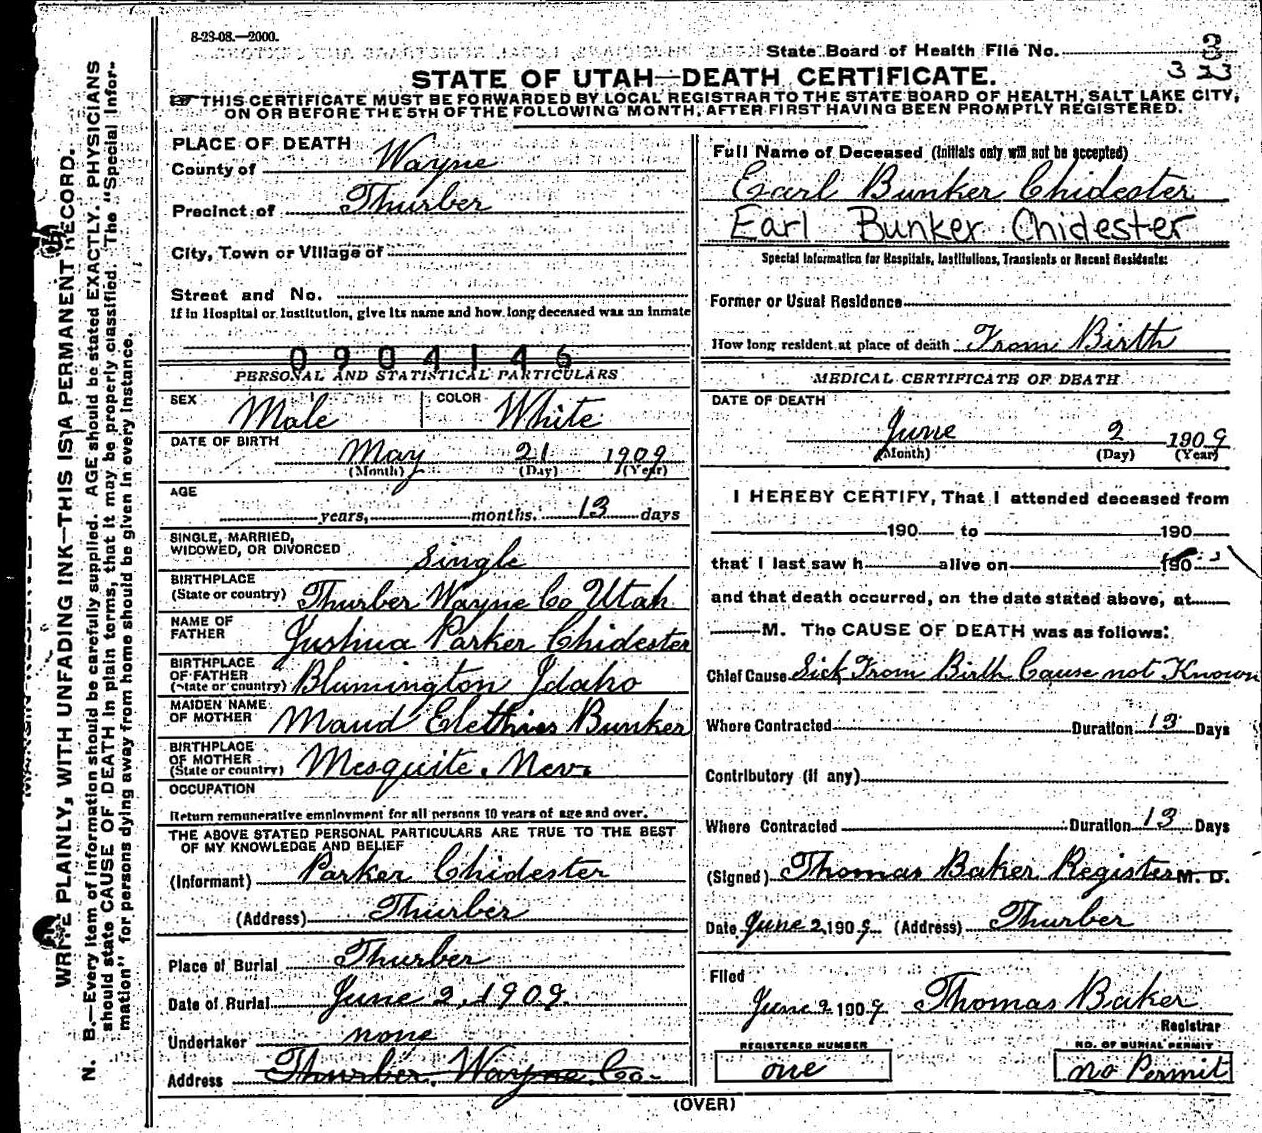 8-23-08.—2000.
State Board of Health File No. 3
3 23
STATE OF UTAH—DEATH CERTIFICATE.
☞ THIS CERTIFICATE MUST BE FORWARDED BY LOCAL REGISTRAR TO THE STATE BOARD OF HEALTH, SALT LAKE CITY,
ON OR BEFORE THE 5TH OF THE FOLLOWING MONTH, AFTER FIRST HAVING BEEN PROMPTLY REGISTERED.
WRITE PLAINLY, WITH UNFADING INK—THIS IS A PERMANENT RECORD.
N. B.—Every item of information should be carefully supplied. AGE should be stated EXACTLY. PHYSICIANS
should state CAUSE OF DEATH in plain terms, that it may be properly classified. The "Special Infor-
mation" for persons dying away from home should be given in every instance.
PLACE OF DEATH
County of Wayne
Precinct of Thurber
City, Town or Village of
Street and No.
If in Hospital or Institution, give its name and how long deceased was an inmate
0904146
PERSONAL AND STATISTICAL PARTICULARS
SEX Male COLOR White
DATE OF BIRTH
May 21 1909
(Month) (Day) (Year)
AGE
years, months. 13 days
SINGLE, MARRIED,
WIDOWED, OR DIVORCED Single
BIRTHPLACE
(State or country) Thurber Wayne Co Utah
NAME OF
FATHER Jushua Parker Chidester
BIRTHPLACE
OF FATHER
(State or country) Blumington Idaho
MAIDEN NAME
OF MOTHER Maud Elethies Bunker
BIRTHPLACE
OF MOTHER
(State or country) Mesquite. Nev.
OCCUPATION
Return remunerative employment for all persons 10 years of age and over.
THE ABOVE STATED PERSONAL PARTICULARS ARE TRUE TO THE BEST
OF MY KNOWLEDGE AND BELIEF
(Informant) Parker Chidester
(Address) Thurber
Place of Burial Thurber
Date of Burial June 2, 1909
Undertaker none
Address Thurber. Wayne. Co-
Full Name of Deceased (Initials only will not be accepted)
Earl Bunker Chidester
Earl Bunker Chidester
Special Information for Hospitals, Institutions, Transients or Recent Residents:
Former or Usual Residence
How long resident at place of death From Birth
MEDICAL CERTIFICATE OF DEATH
DATE OF DEATH
June 2 1909
(Month) (Day) (Year)
I HEREBY CERTIFY, That I attended deceased from
190 to 190
that I last saw h alive on 190
and that death occurred, on the date stated above, at
M. The CAUSE OF DEATH was as follows:
Chief Cause Sick From Birth Cause not Known
Where Contracted Duration 13 Days
Contributory (if any)
Where Contracted Duration 13 Days
(Signed) Thomas Baker Register M. D.
Date June 2, 1909 (Address) Thurber
Filed
June 2 1909 Thomas Baker
Registrar
REGISTERED NUMBER
one
NO. OF BURIAL PERMIT
no Permit
(OVER)